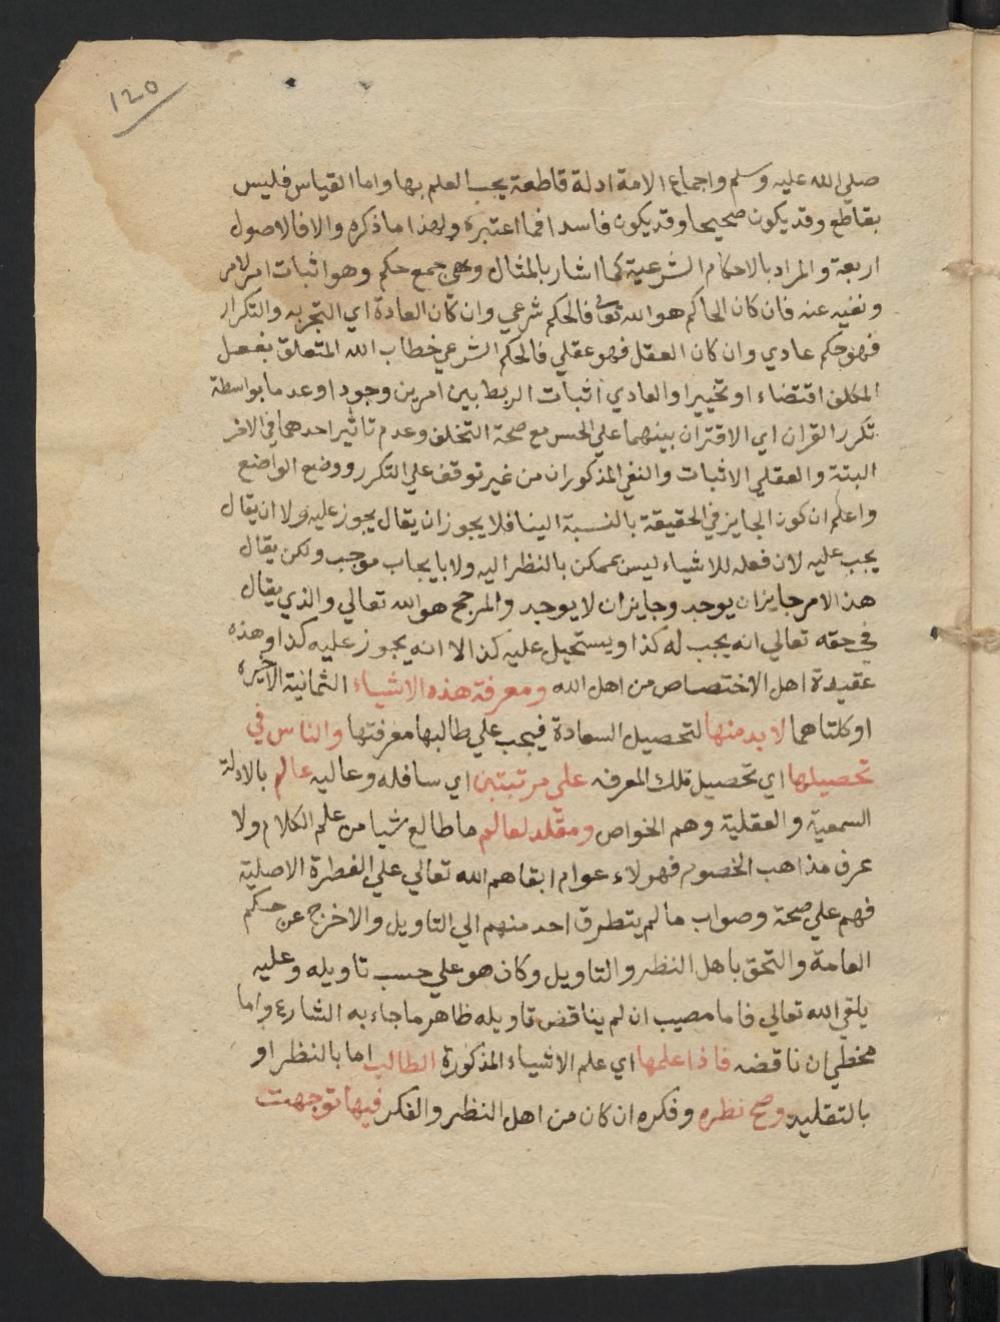 120
صلي الله عليه وسلم واجماع الامة ادلة قاطعة يجب العلم بها واما القياس فليس
بقاطع وقد يكون صحيحا وقد يكون فاسدا فما اعتبره ولهذا ما ذكره والا فالاصول
اربعة والمراد بالاحكام الشرعية كما اشار بالمثال وهي جمع حكم وهو اثبات امر لامر
ونفيه عنه فان كان الحاكم هو الله تعالى فالحكم شرعي وان كان العادة اي التجربه والتكرار
فهو حكم عادي وان كان العقل فهو عقلي فالحكم الشرعي خطاب الله المتعلق بفعل
المكلف اقتضاء او تخييرا والعادي اثبات الربط بين امرين وجودا وعدما بواسطة
تكرر القران اي الاقتران بينهما علي الحس مع صحة التخلف وعدم تاثير احدهما في الاخر
البتة والعقلي الاثبات والنفي المذكوران من غير توقف علي التكرر ووضع الواضع
واعلم ان كون الجايز في الحقيقة بالنسبة الينا فلا يجوز ان يقال يجوز عليه ولا ان يقال
يجب عليه لان فعله للاشياء ليس بممكن بالنظر اليه ولا بايجاب موجب ولكن يقال
هذا الامر جايز ان يوجد وجايز ان لا يوجد والمرجح هو الله تعالي والذي يقال
في حقه تعالي انه يجب له كذا ويستحيل عليه كذا لا انه يجوز عليه كذا وهذه
عقيدة اهل الاختصاص من اهل الله ومعرفة هذه الاشياء الثمانية الاخيرة
او كلتاهما لا بد منها لتحصيل السعادة فيجب علي طالبها معرفتها والناس في
تحصيلها اي تحصيل تلك المعرفه علي مرتبتين اي سافله وعاليه عالم بالادلة
السمعية والعقلية وهم الخواص ومقلد لعالم ما طالع شيا من علم الكلام ولا
عرف مذاهب الخصوم فهولاء عوام ابقاهم الله تعالي علي الفطرة الاصلية
فهم علي صحة وصواب ما لم يتطرق احد منهم الي التاويل والا خرج عن حكم
العامة والتحق باهل النظر والتاويل وكان هو علي حسب تاويله وعليه
يلقي الله تعالي فاما مصيب ان لم يناقض تاويله ظاهر ما جاء به الشارع واما
مخطي ان ناقضه فاذا علمها اي علم الاشياء المذكورة الطالب اما بالنظر او
بالتقليد وصح نظره وفكره ان كان من اهل النظر والفكر فيها توجهت